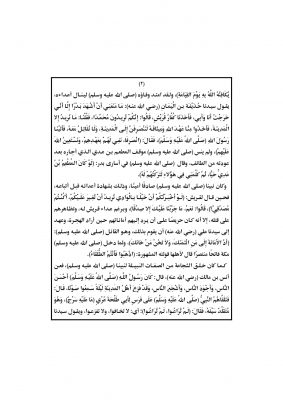 (٣)
يُكَافِئُهُ اللَّهُ بِهِ يَوْمَ القِيَامَةِ)، ولقد امتد وفاؤه (صلى الله عليه وسلم) ليشمل أعداءه،
يقول سيدنا حُذَيْفَة بن الْيَمَانِ (رضي الله عنه): مَا مَنَعَنِي أَنْ أَشْهَدَ بَدْرًا إِلَّا أَنِّي
خَرَجْتُ أَنَا وَأَبِي، فَأَخَذَنَا كُفَّارُ قُرَيْشٍ، قَالُوا: إِنَّكُمْ تُرِيدُونَ مُحَمَّدًا، فَقُلْنَا: مَا نُرِيدُ إِلَّا
الْمَدِينَةَ، فَأَخَذُوا مِنَّا عَهْدَ اللهِ وَمِيثَاقَهُ لَنَنْصَرِفَنَّ إِلَى الْمَدِينَةِ، وَلَا نُقَاتِلُ مَعَهُ، فَأَتَيْنَا
رسول الله (صلى الله عليه وسلم)، فقال: (انْصَرِفَا، نَفِي لَهُمْ بِعَهْدِهِمْ، وَنَسْتَعِينُ اللهَ
عَلَيْهِمْ)، ولم ينس (صلى الله عليه وسلم) موقف المطعم بن عدي الذي أجاره بعد
عودته من الطائف، وقال (صلى الله عليه وسلم) في أسارى بدر: (لَوْ كَانَ الْمُطْعِمُ بْنُ
عَدِيٍّ حَيًّا، ثُمَّ كَلَّمَنِي فِي هَؤُلَاءِ لَتَرَكْتُهُمْ لَهُ).
وكان نبينا (صلى الله عليه وسلم) صادقًا أمينًا، وذلك بشهادة أعدائه قبل أتباعه،
فحين قال لقريش: (لَوْ أَخْبَرْتُكُمْ أَنَّ خَيْلًا بِالْوَادِي تُرِيدُ أَنْ تُغِيرَ عَلَيْكُمْ؛ أَكُنْتُمْ
مُصَدِّقِيَّ؟)، قَالُوا: نَعَمْ، مَا جَرَّبْنَا عَلَيْكَ إِلَّا صِدْقًا)، وبرغم عداء قريش له، وتظاهرهم
على قتله، إلا أنه كان حريصًا على أن يرد إليهم أماناتهم حين أراد الهجرة، وعهد
إلى سيدنا علي (رضي الله عنه) أن يقوم بذلك، وهو القائل (صلى الله عليه وسلم):
(أَدِّ الْأَمَانَةَ إِلَى مَنِ ائْتَمَنَكَ، وَلَا تَخُنْ مَنْ خَانَكَ)، ولما دخل (صلى الله عليه وسلم)
مكة فاتحًا منتصرًا قال لأهلها قولته المشهورة: (اذْهَبُوا فَأَنْتُمُ الطُّلَقَاءُ).
كما كان خلق الشجاعة من الصفات النبيلة لنبينا (صلى الله عليه وسلم)، فعن
أنس بن مالك (رضي الله عنه)، قال: كان رَسُولُ اللَّهِ (صَلَّى اللهُ عَلَيْهِ وَسَلَّمَ) أَحْسَنَ
النَّاسِ، وَأَجْوَدَ النَّاسِ، وَأَشْجَعَ النَّاسِ، وَقَدْ فَزِعَ أَهْلُ المَدِينَةِ لَيْلَةً سَمِعُوا صَوْتًا، قَالَ:
فَتَلَقَّاهُمُ النَّبِيُّ (صَلَّى اللهُ عَلَيْهِ وَسَلَّمَ) عَلَى فَرَسٍ لِأَبِي طَلْحَةَ عُرْيٍ (مَا عَلَيْهِ سَرْجٌ)، وَهُوَ
مُتَقَلِّدٌ سَيْفَهُ، فَقَالَ: (لَمْ تُرَاعُوا، لَمْ تُرَاعُوا): أي: لا تخافوا، ولا تفزعوا، ويقول سيدنا